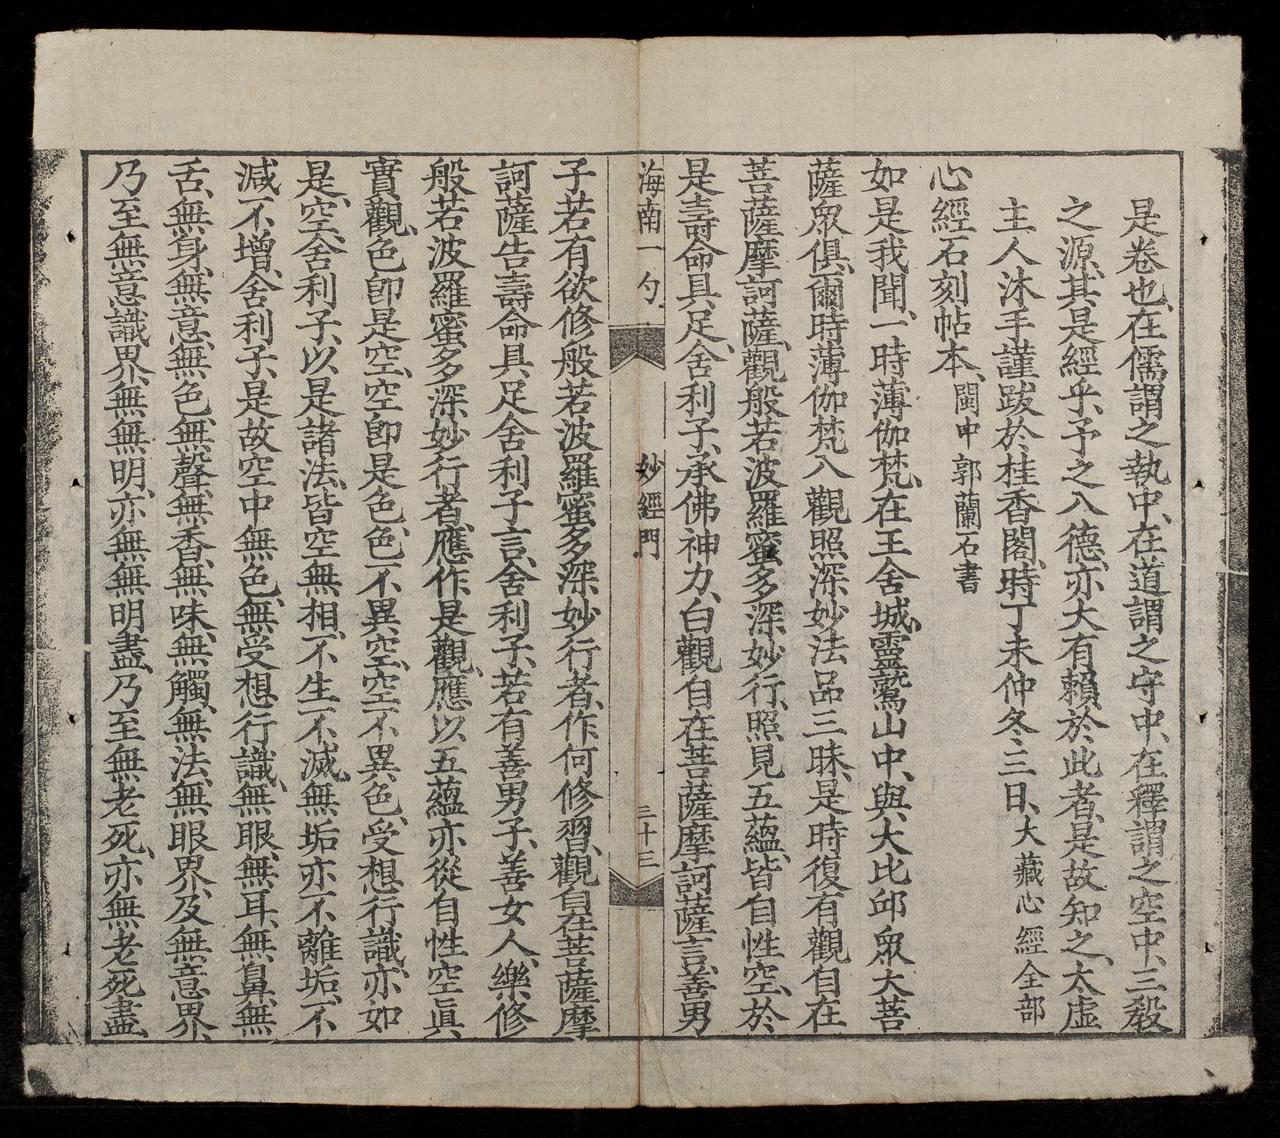 是卷也、在儒謂之執中、在道謂之守中、在釋謂之空中、三敎
之源、其是經乎、予之八德、亦大有賴於此者、是故知之、太虛
主人沐手謹跋於桂香閣、時丁未仲冬三日、大藏心經全部
心經石刻帖本、閩中郭蘭石書
如是我聞、一時薄伽梵、在王舍城靈鷲山中、與大比邱衆大菩
薩衆俱、爾時薄伽梵入觀照深妙法品三昧、是時復有觀自在
菩薩摩訶薩、觀般若波羅蜜多深妙行、照見五蘊、皆自性空、於
是壽命具足、舍利子、承佛神力、白觀自在菩薩摩訶薩言、善男
海南一勺
妙經門
三十三
子若有欲修般若波羅蜜多深妙行者、作何修習、觀自在菩薩摩
訶薩告壽命具足舍利子言、舍利子、若有善男子、善女人、樂修
般若波羅蜜多深妙行者、應作是觀、應以五蘊亦從自性空眞
實觀、色卽是空、空卽是色、色不異空、空不異色、受想行識、亦如
是空、舍利子、以是諸法、皆空無相、不生不滅、無垢亦不離垢、不
減不增、舍利子、是故空中無色、無受想行識、無眼、無耳、無鼻、無
舌、無身、無意、無色、無聲、無香、無味、無觸、無法、無眼界、及無意界、
乃至無意識界、無無明、亦無無明盡、乃至無老死、亦無老死盡、